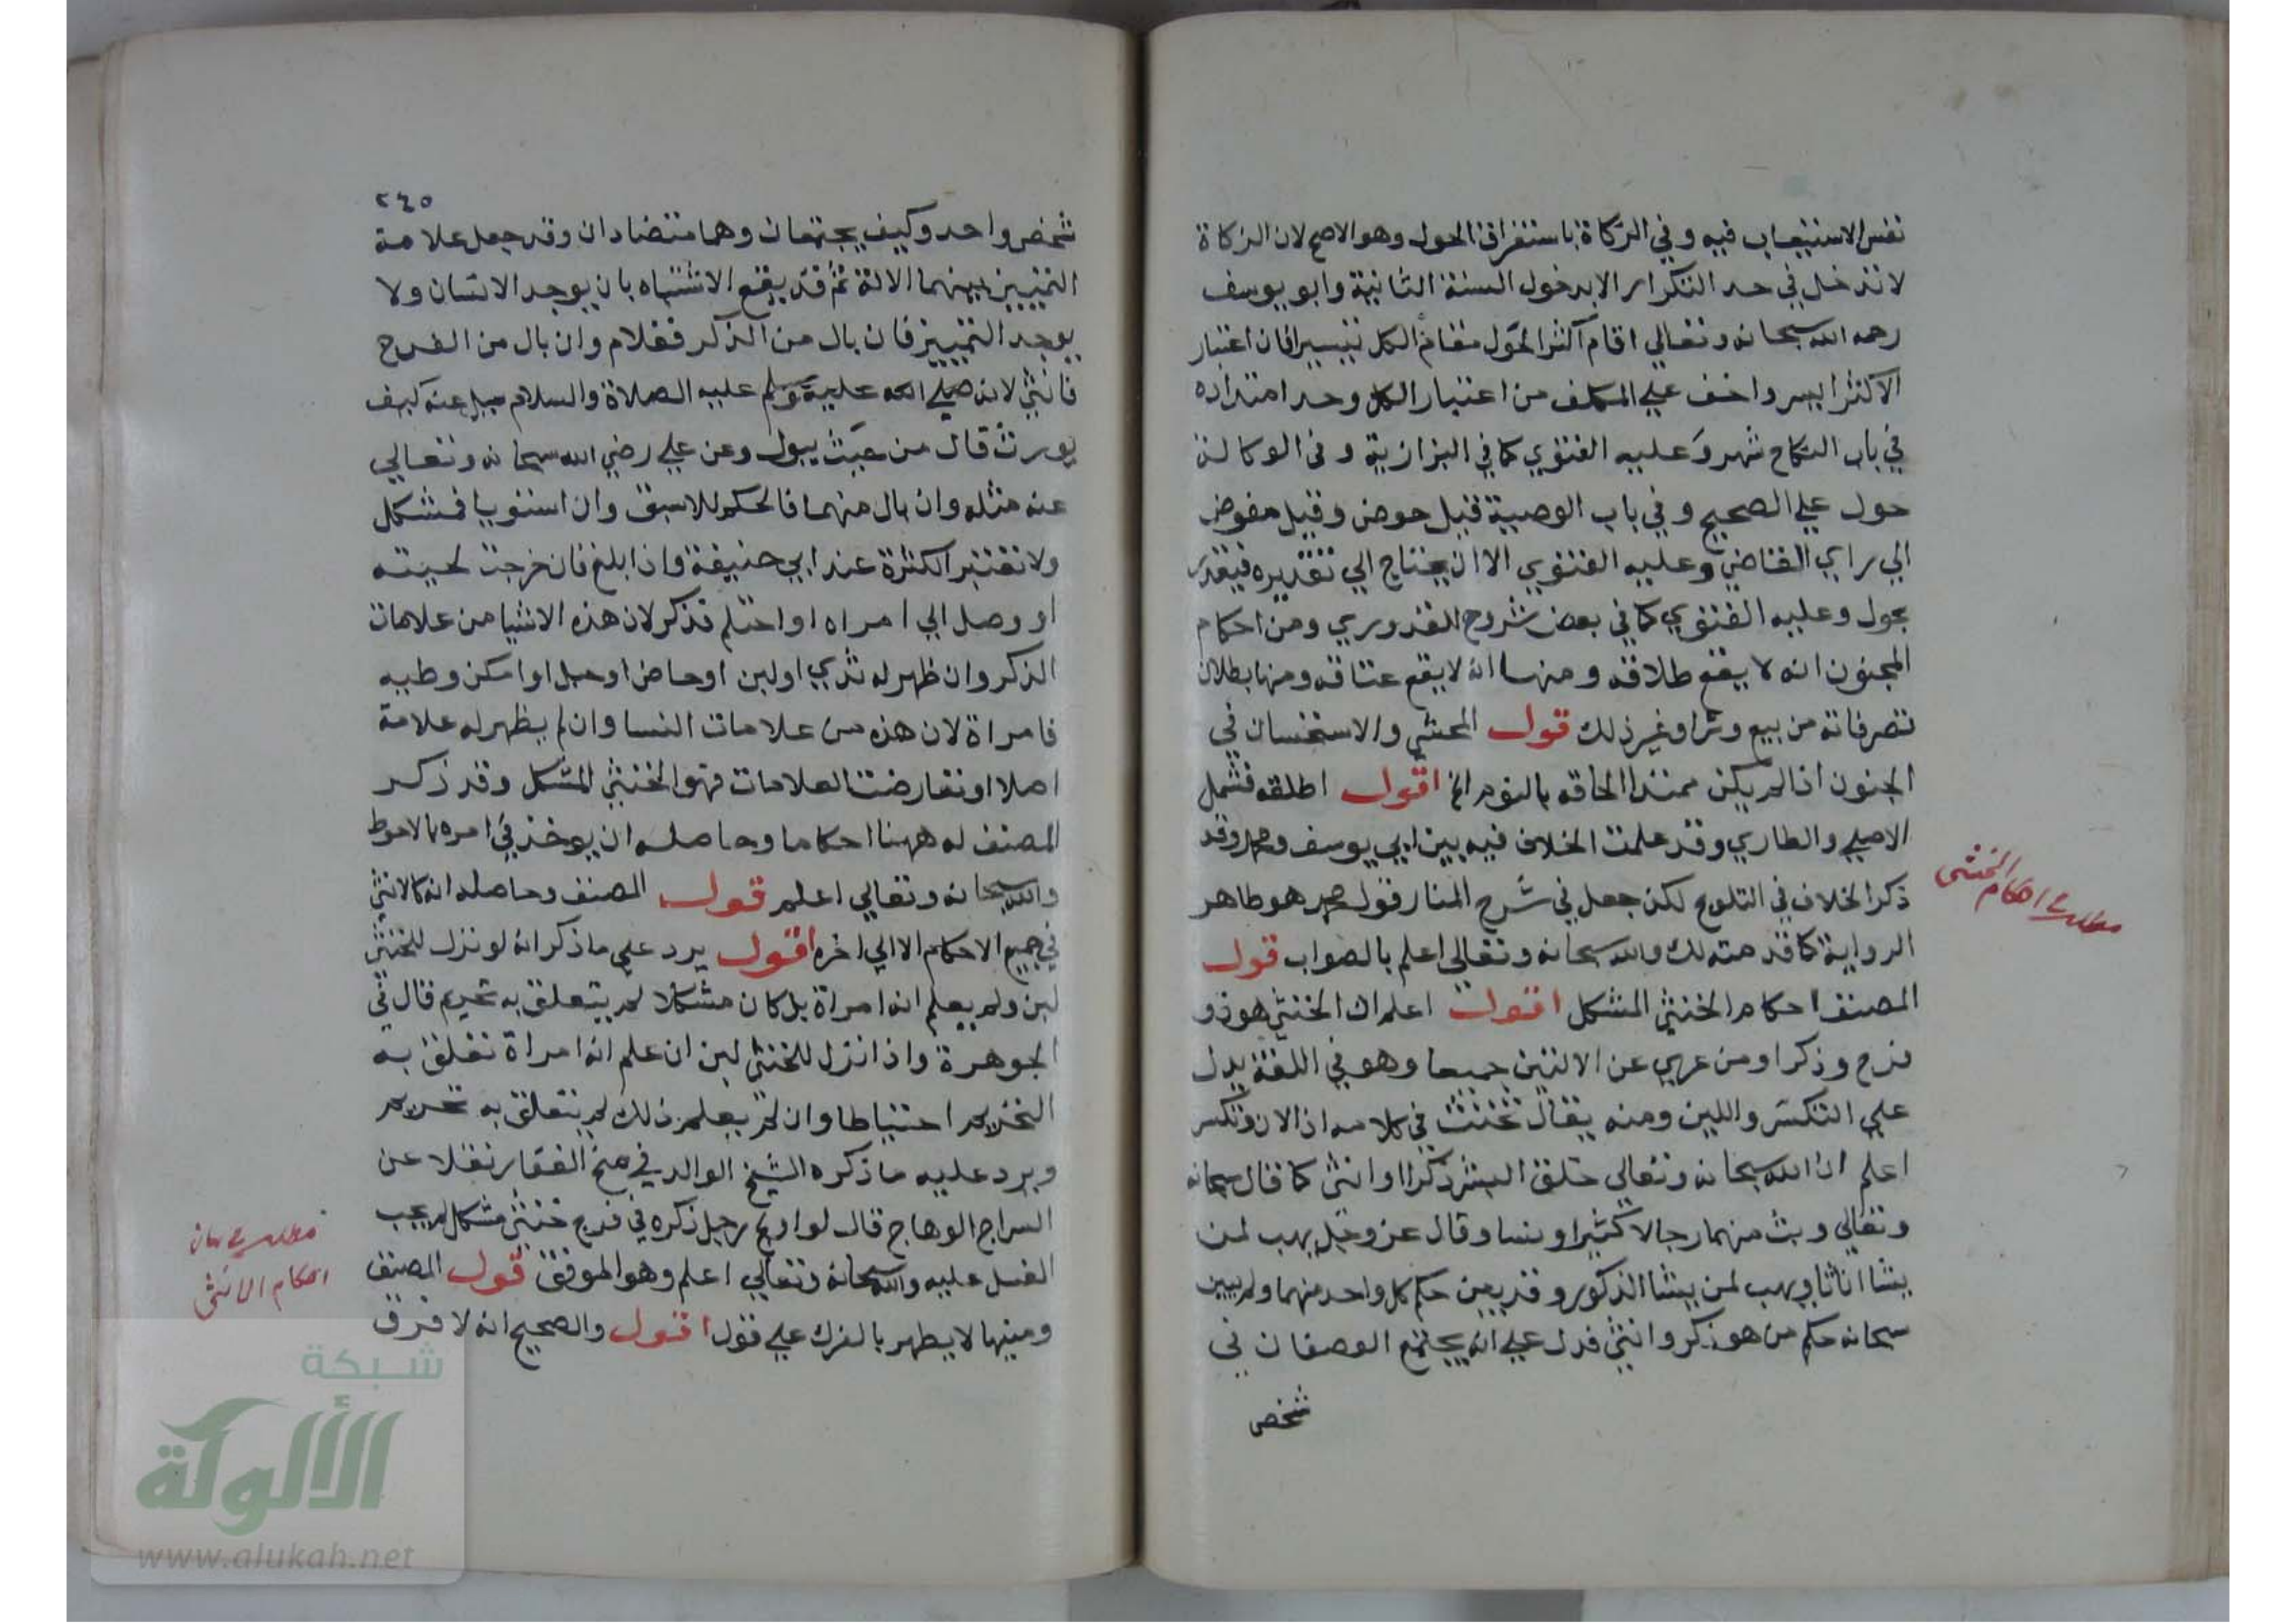 نفس الاستيعاب فيه وفي الزكاة باستغراق الحول وهو الاصح لان الزكاة
لا تدخل في حد التكرار الا بدخول السنة الثانية وابو يوسف
رحمه الله سبحانه وتعالي اقام اكثر الحول مقام الكل تيسيرا فان اعتبار
الاكثر ايسر واخف علي المكلف من اعتبار الكل وحد امتداده
في باب النكاح شهر وعليه الفتوي كما في البزازية وفي الوكالة
حول علي الصحيح وفي باب الوصية قيل حوض وقيل مفوض
الي راي القاضي وعليه الفتوي الا ان يحتاج الي تقديره فيقدر
بحول وعليه الفتوي كما في بعض شروح القدوري ومن احكام
المجنون انه لا يقع طلاقه ومنها انه لا يقع عتاقه ومنها بطلان
تصرفاته من بيع وشرا وغير ذلك قول المحشي والاستحسان في
الجنون اذا لم يكن ممتدا الحاقه بالنوم الخ اقول اطلقه فشمل
الاصلي والطاري وقد علمت الخلاف فيه بين ابي يوسف ومحمد وقد
ذكر الخلاف في التلويح لكن جعل في شرح المنار قول محمد هو ظاهر
الرواية كما قدمته لك والله سبحانه وتعالي اعلم بالصواب قول
المصنف احكام الخنثي المشكل اقول اعلم ان الخنثي هو ذو
فرج وذكر او من عري عن الالتين جميعا وهو في اللغة يدل
علي التكسر واللين ومنه يقال تخنث في كلامه اذا لان وتكسر
اعلم ان الله سبحانه وتعالي خلق البشر ذكرا وانثي كما قال سبحانه
وتعالي وبث منهما رجالا كثيرا ونسا وقال عز وجل يهب لمن
يشا اناثا ويهب لمن يشا الذكور وقد بين حكم كل واحد منهما ولم يبين
سبحانه حكم من هو ذكر وانثي فدل علي انه يجتمع الوصفان في
شخص
مطلب احكام الخنثي
٢٤٥
شخص واحد وكيف يجتمعان وهما متضادان وقد جعل علامة
التمييز بينهما الالة ثم قد يقع الاشتباه بان يوجد الالتان ولا
يوجد التمييز فان بال من الذكر فغلام وان بال من الفرج
فانثي لانه صلي الله عليه وسلم عليه الصلاة والسلام سيل عنه كيف
يورث قال من حيث يبول وعن علي رضي الله سبحانه وتعالي
عنه مثله وان بال منهما فالحكم للاسبق وان استويا فمشكل
ولا تعتبر الكثرة عند ابي حنيفة واذا بلغ فان خرجت لحيته
او وصل الي امراه او احتلم فذكر لان هذه الاشيا من علامات
الذكر وان ظهر له ثدي او لبن او حاض او حبل او امكن وطيه
فامراة لان هذه من علامات النسا وان لم يظهر له علامة
اصلا او تعارضت العلامات فهو الخنثي المشكل وقد ذكر
المصنف له ههنا احكاما وحاصله ان يوخذ في امره بالاحوط
والله سبحانه وتعالي اعلم قول المصنف وحاصله انه كالانثي
في جميع الاحكام الا الي اخره اقول يرد علي ما ذكر انه لو نزل للخنثي
لبن ولم يعلم انه امراة بل كان مشكلا لم يتعلق به تحريم قال في
الجوهرة واذا نزل للخنثي لبن ان علم انه امراة تعلق به
التحريم احتياطا وان لم يعلم ذلك لم يتعلق به تحريم
ويرد عليه ما ذكره الشيخ الوالد في منح الغفار نقلا عن
السراج الوهاج قال لو اولج رجل ذكره في فرج خنثي مشكل لم يجب
الغسل عليه والله سبحانه وتعالي اعلم وهو الموفق قول المصنف
ومنيها لا يطهر بالفرك علي قول اقول والصحيح انه لا فرق
مطلب بيان
احكام الانثي
شبكة
الألوكة
www.alukah.net